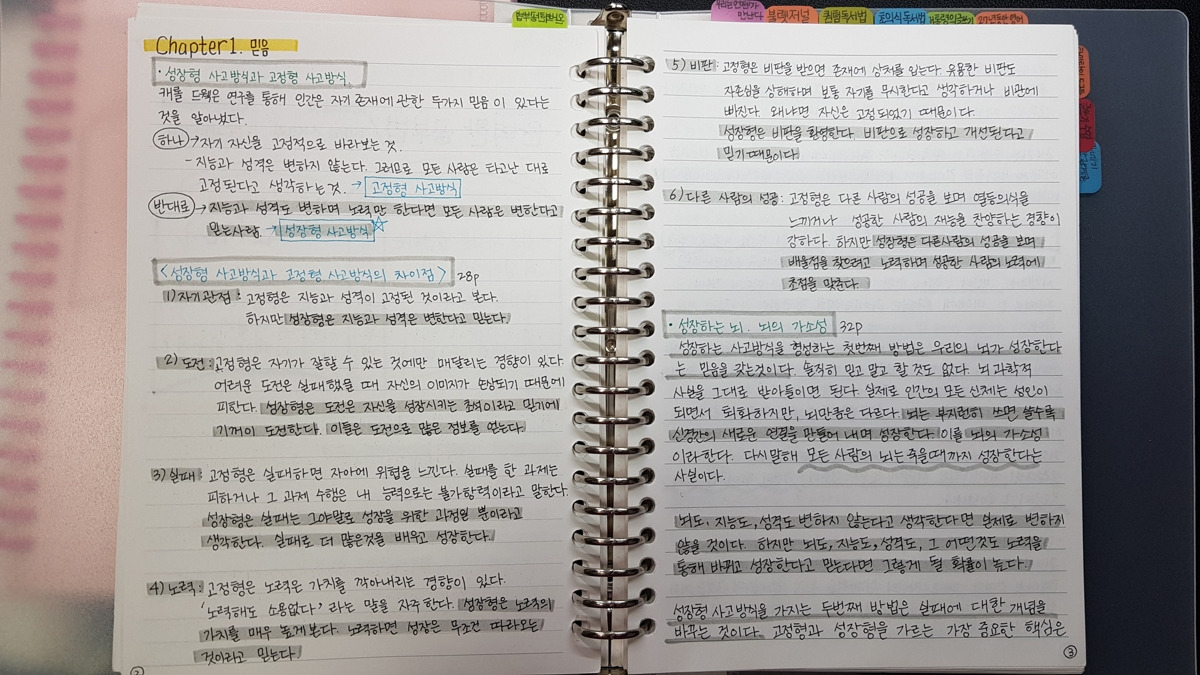 Chapter1. 믿음
· 성장형 사고방식과 고정형 사고방식.
캐롤 드웩은 연구를 통해 인간은 자기 존재에 관한 두가지 믿음이 있다는
것을 알아냈다.
하나 → 자기 자신을 고정적으로 바라보는 것.
- 지능과 성격은 변하지 않는다. 그러므로 모든 사람은 타고난 대로
고정된다고 생각하는 것. → 고정형 사고방식
반대로 → 지능과 성격도 변하며 노력만 한다면 모든 사람은 변한다고
믿는사람. → 성장형 사고방식 ☆
<성장형 사고방식과 고정형 사고방식의 차이점> 28p
1) 자기관점 : 고정형은 지능과 성격이 고정된 것이라고 본다.
하지만 성장형은 지능과 성격은 변한다고 믿는다.
2) 도전 : 고정형은 자기가 잘할 수 있는 것에만 매달리는 경향이 있다.
어려운 도전은 실패했을 때 자신의 이미지가 손상되기 때문에
피한다. 성장형은 도전은 자신을 성장시키는 것이라고 믿기에
기꺼이 도전한다. 이들은 도전으로 많은 정보를 얻는다.
3) 실패 : 고정형은 실패하면 자아에 위협을 느낀다. 실패를 한 과제는
피하거나 그 과제 수행은 내 능력으로는 불가항력이라고 말한다.
성장형은 실패는 그야말로 성장을 위한 과정일 뿐이라고
생각한다. 실패로 더 많은것을 배우고 성장한다.
4) 노력 : 고정형은 노력은 가치를 깎아내리는 경향이 있다.
'노력해도 소용없다' 라는 말을 자주 한다. 성장형은 노력의
가치를 매우 높게 본다. 노력하면 성장은 무조건 따라오는
것이라고 믿는다.
5) 비판 : 고정형은 비판을 받으면 존재에 상처를 입는다. 유용한 비판도
자존심을 상해하며 보통 자기를 무시한다고 생각하거나 비관에
빠진다. 왜냐면 자신은 고정되었기 때문이다.
성장형은 비판을 환영한다. 비판으로 성장하고 개선된다고
믿기때문이다.
6) 다른 사람의 성공 : 고정형은 다른 사람의 성공을 보며 열등의식을
느끼거나 성공한 사람의 재능을 찬양하는 경향이
강하다. 하지만 성장형은 다른사람의 성공을 보며
배울점을 찾으려고 노력하며 성공한 사람의 노력에
초점을 맞춘다.
· 성장하는 뇌. 뇌의 가소성 32p
성장하는 사고방식을 형성하는 첫번째 방법은 우리의 뇌가 성장한다
는 믿음을 갖는것이다. 솔직히 믿고 말고 할 것도 없다. 뇌 과학적
사실을 그대로 받아들이면 된다. 실제로 인간의 모든 신체는 성인이
되면서 퇴화하지만, 뇌만큼은 다르다. 뇌는 부지런히 쓰면 쓸수록
신경간의 새로운 연결을 만들어 내며 성장한다. 이를 뇌의 가소성
이라한다. 다시말해 모든 사람의 뇌는 죽을때까지 성장한다는
사실이다.
뇌도, 지능도, 성격도 변하지 않는다고 생각한다면 실제로 변하지
않을 것이다. 하지만 뇌도, 지능도, 성격도, 그 어떤것도 노력을
통해 바뀌고 성장한다고 믿는다면 그렇게 될 확률이 높다.
성장형 사고방식을 가지는 두번째 방법은 실패에 대한 개념을
바꾸는 것이다. 고정형과 성장형을 가르는 가장 중요한 핵심은
3